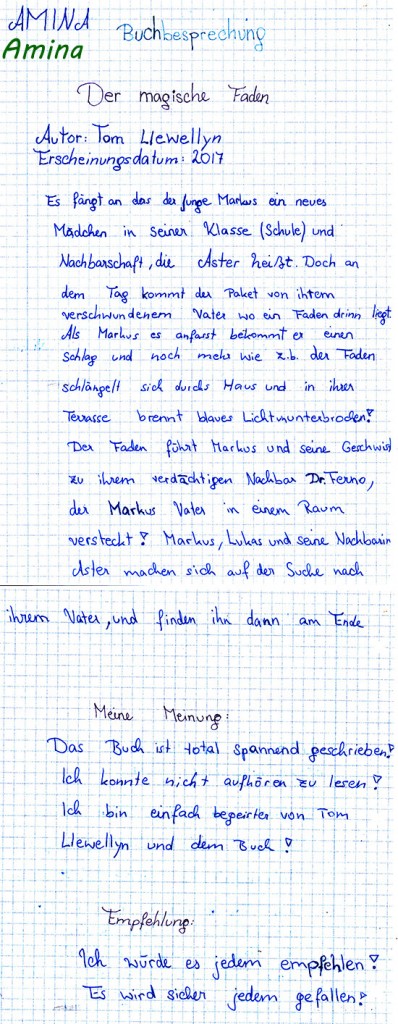 AMINA
Amina
Buchbesprechung
Der magische Faden
Autor: Tom Llewellyn
Erscheinungsdatum: 2017
Es fängt an das der Junge Markus ein neues
Mädchen in seiner Klasse (Schule) und
Nachbarschaft, die Aster heißt. Doch an
dem Tag kommt der Paket von ihrem
verschwundenem Vater wo ein Faden drinn liegt.
Als Markus es anfasst bekommt er einen
Schlag und noch mehr wie z.b. der Faden
schlängelt sich durchs Haus und in ihrer
Terasse brennt blaues Licht ununterbrochen!
Der Faden führt Markus und seine Geschwist
zu ihrem verdächtigen Nachbar Dr. Ferno,
der Markus Vater in einem Raum
versteckt! Markus, Lukas und seine Nachbarin
Aster machen sich auf der Suche nach
ihrem Vater, und finden ihn dann am Ende
Meine Meinung:
Das Buch ist total spannend geschrieben!
Ich konnte nicht aufhören zu lesen!
Ich bin einfach begeistert von Tom
Llewellyn und dem Buch!
Empfehlung:
Ich würde es jedem empfehlen!
Es wird sicher jedem gefallen!